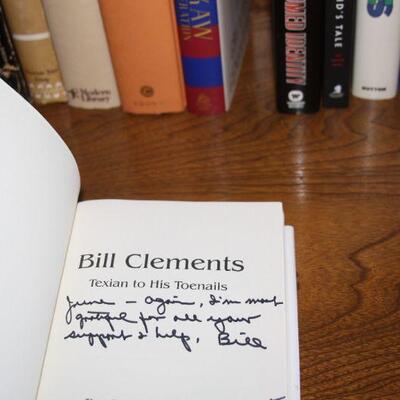 Modern
Library
IDENTITY
D'S TALE
DUTTON
Bill Clements
Texian to His Toenails
June – again, I'm most
grateful for all your
support & help, Bill